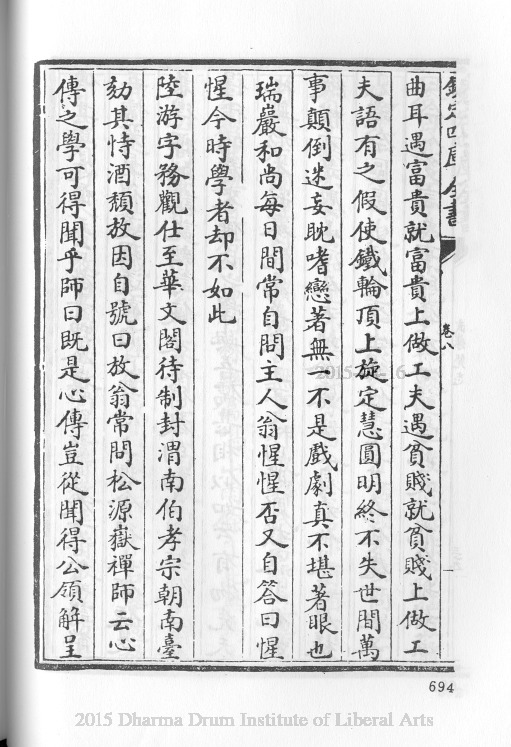 欽定四庫全書
卷八
曲耳遇富貴就富貴上做工夫遇貧賤就貧賤上做工
夫語有之假使鐵輪頂上旋定慧圓明終不失世間萬
事顛倒迷妄眈嗜戀著無不是戲劇真不堪著眼也
瑞巖和尚每日間常自問主人翁惺惺否又自答曰惺
惺今時學者却不如此
陸游字務觀仕至華文閣待制封渭南伯孝宗朝南臺
劾其恃酒頹放因自號曰放翁常問松源嶽禪師云心
傳之學可得聞乎師曰既是心傳豈從聞得公領解呈
694
2015 Dharma Drum Institute of Liberal Arts